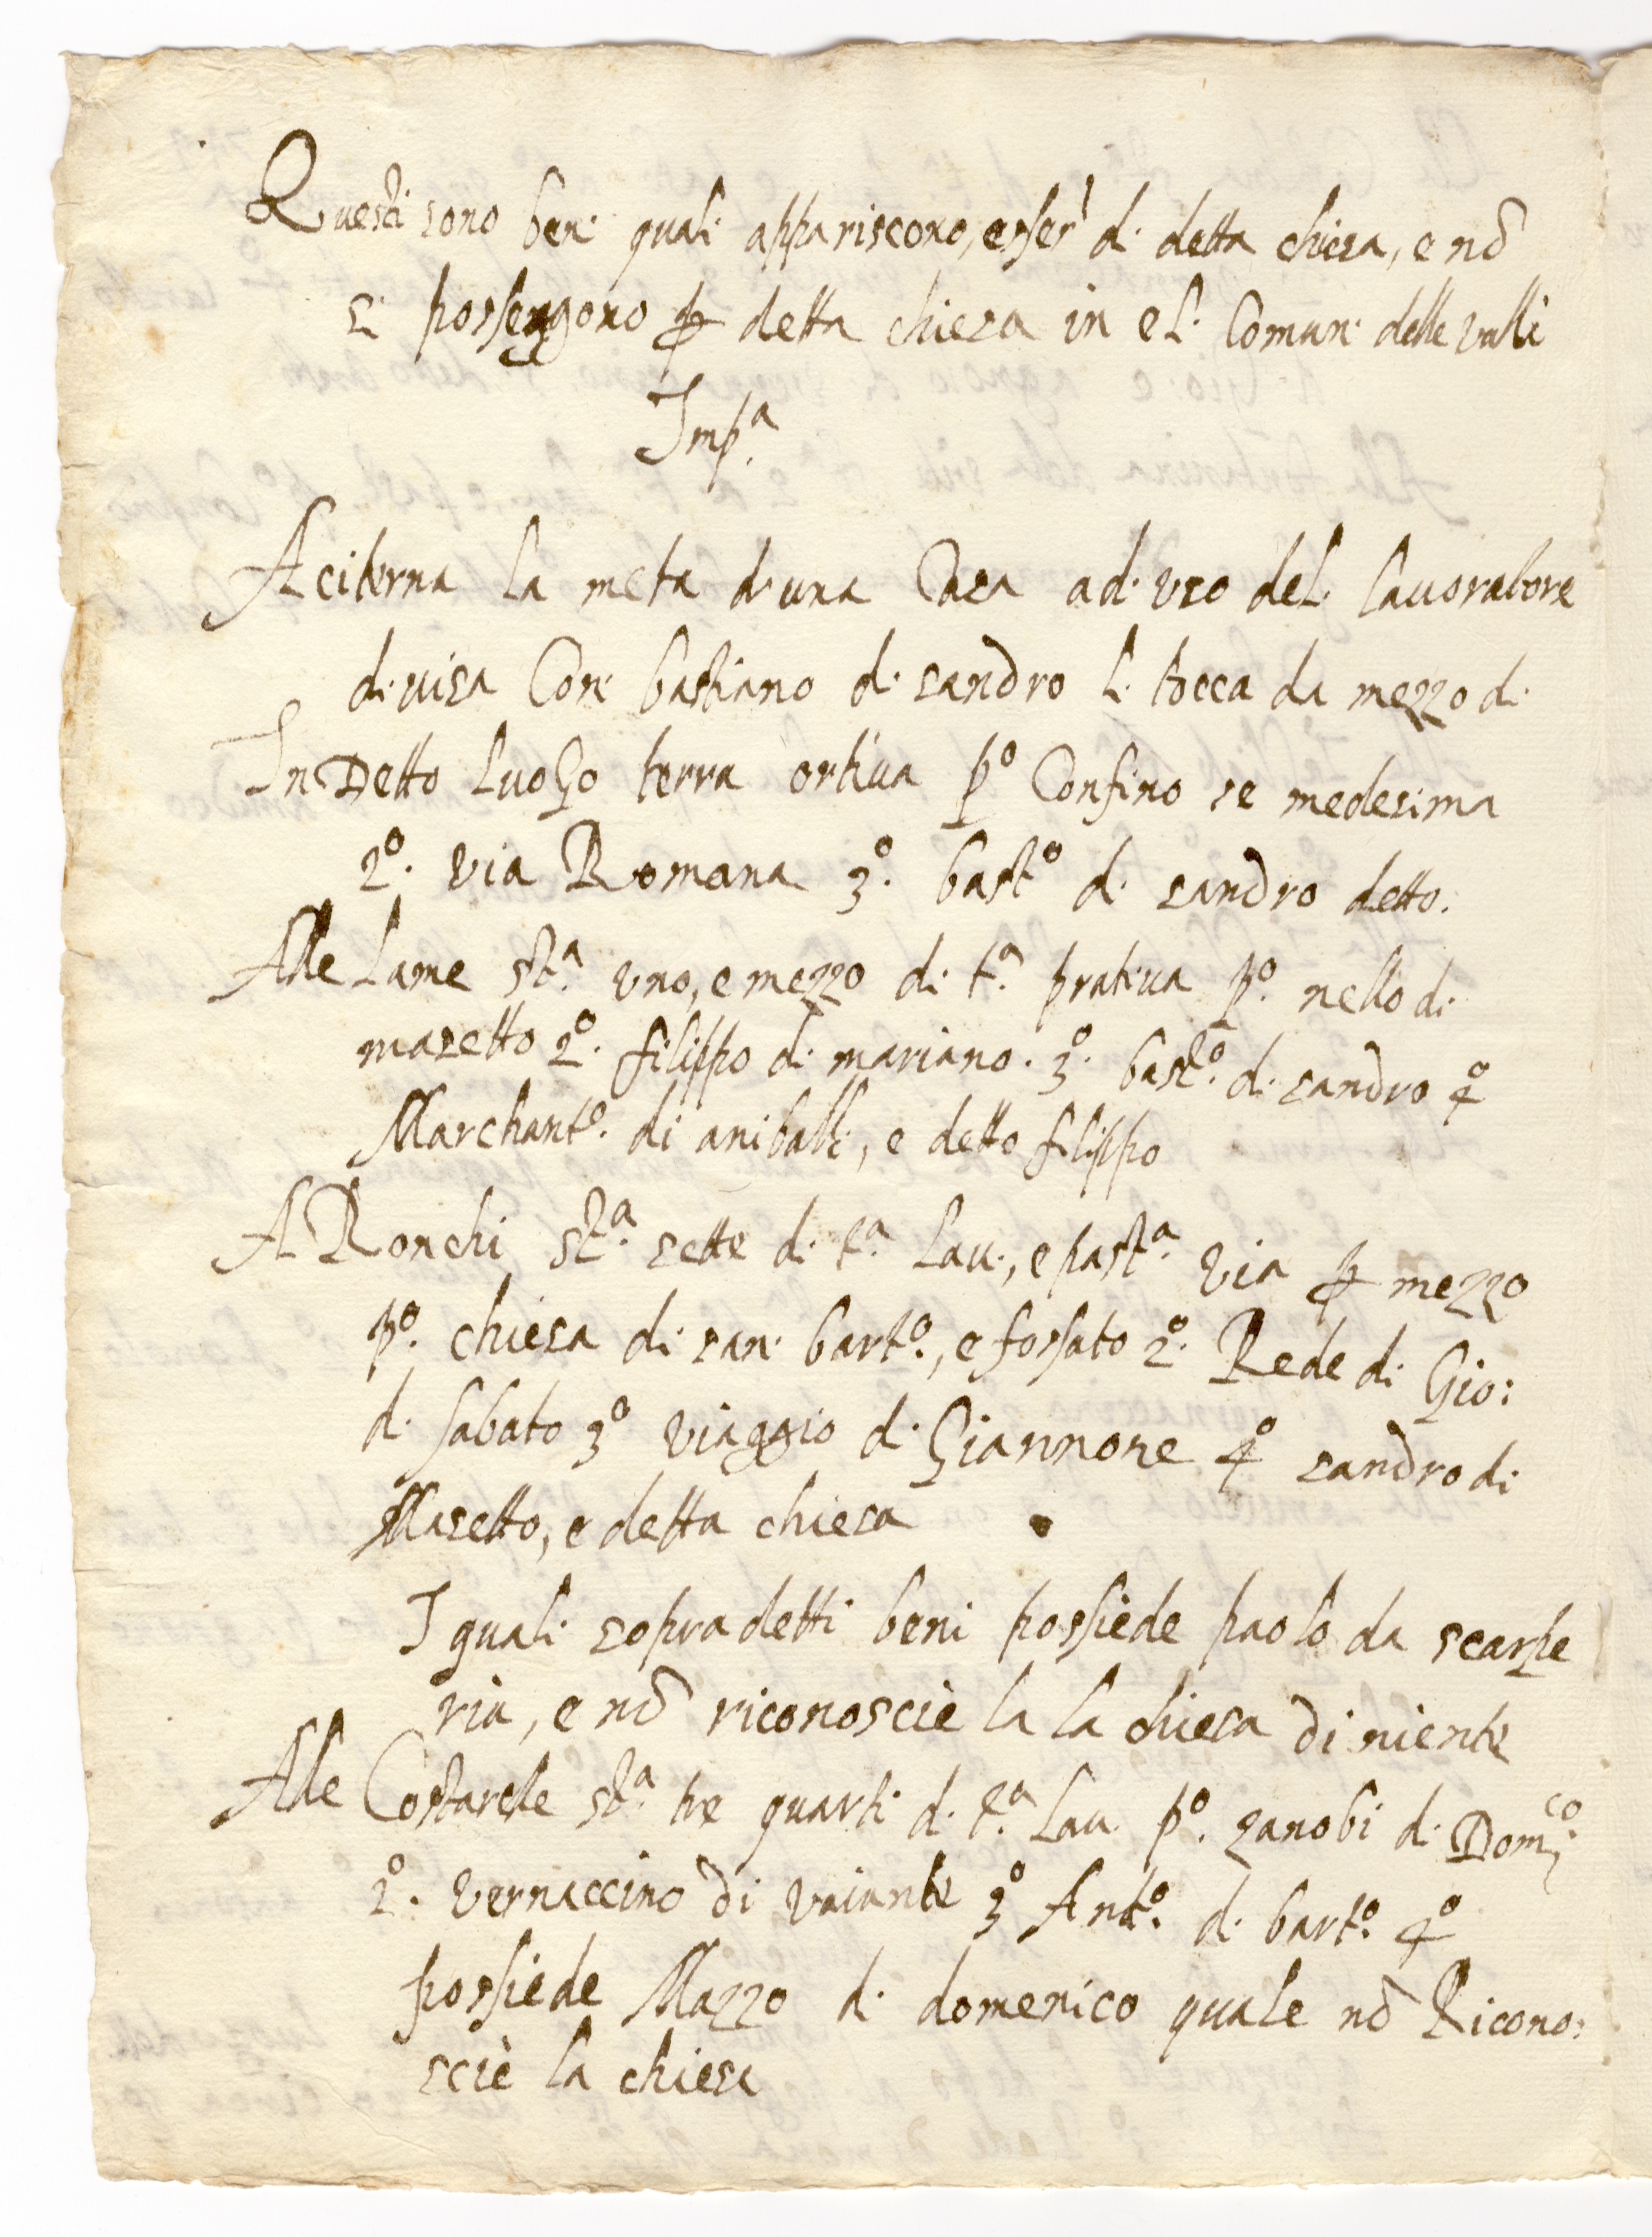 Questi sono beni quali appariscono, esser di detta chiesa, e nō
si possengono ꝑ detta chiesa in el Comun delle valli
Imp.ª
A citerna la meta d'una Casa ad uso del lavoratore
divisa Con bastiano di sandro li tocca da mezzo di
In Detto luogo terra ortiva pº Confino se medesima
2º. via Romana 3º. bastº di sandro detto.
Alle Lame stª. uno, e mezzo di tª. prativa pº. nello di
masetto 2º. filippo di mariano. 3º. bastº. di sandro 4º
Marchantº. di aniballe, e detto filippo
A Ronchi stª. sette di tª. Lav., e pastª. via ꝑ mezzo
pº. chiesa di san bartº., e fossato 2º. Rede di Gio:
di sabato 3º viaggio di Giannone 4º sandro di
Masetto, e detta chiesa
I quali sopradetti beni possiede paolo da scarpe
ria, e nō riconoscie la la chiesa di niente
Alle Costarelle stª. tre quarti di tª. Lav. pº. zanobi di Dom.co
2º. vernaccino di vaiante 3º Antº. di bartº. 4º
possiede Mazzo di domenico quale nō Ricono:
scie la chiesa